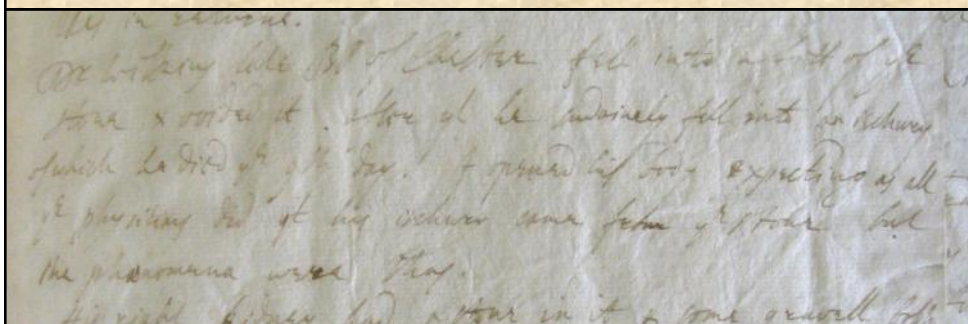 in
Dr Wilkins late Bp of Chester fell into a fitt of ye
stone & voided it. After yt he suddainely fell into an ischury
of which he died ye 9th day. I opened his body expecting as all
ye physitians did yt his ischury came from ye stone but
the phaenomena were thus.
His right kidney had a stone in it & some gravell